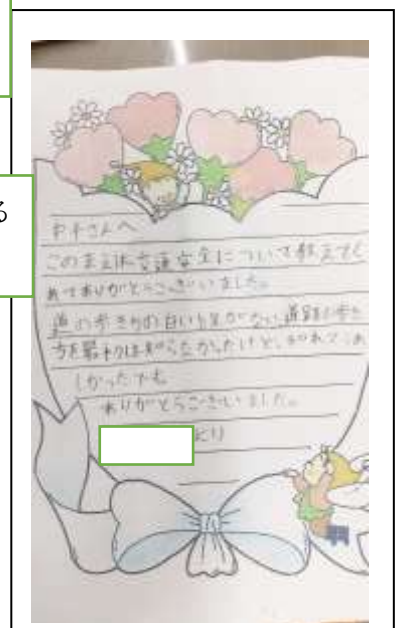 る
さんへ
このまえは交通安全について教えてく
れてありがとうございました。
道の歩き方の白い がない道路の歩き
方を最初は知らなかったけど、
かったです。
ありがとうございました。
より